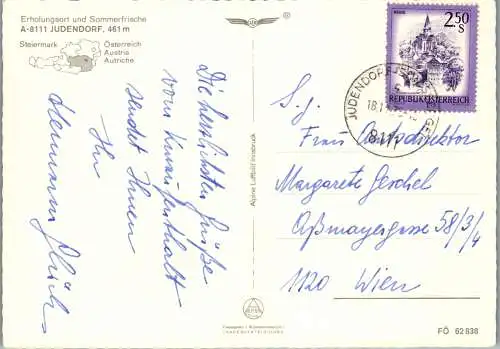 Erholungsort und Sommerfrische
A-8111 JUDENDORF, 461 m
Steiermark
Österreich
Austria
Autriche
Die herzlichsten Grüße
vom Kuraufenthalt
sendet Ihnen
Ihr
Hermann
Alpine Luftbild Innsbruck
2.50
S
REPUBLIK ÖSTERREICH
JUDENDORF
8111
S. g.
Frau
Margarete Herschel
Aßmayergasse 58/3/4
1120 Wien
FÖ 62838